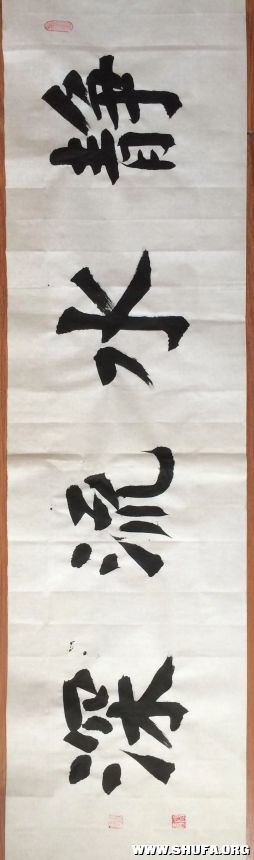 静水流深
WWW.SHUFA.ORG